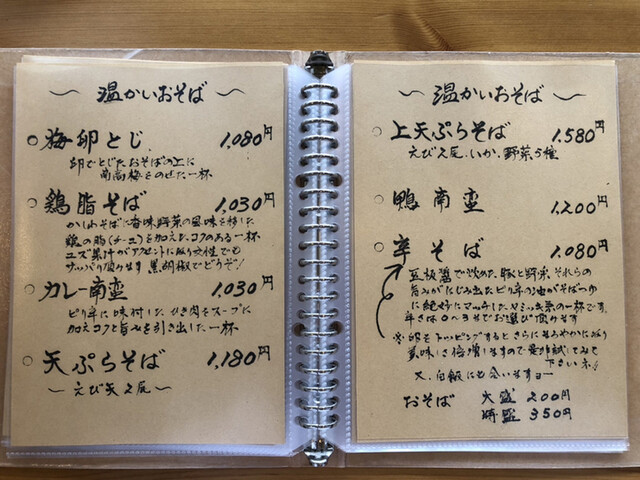 〜 温かいおそば 〜
○ 梅卵とじ 1,080円
卵でとじたおそばの上に
南高梅をのせた一杯
○ 鶏脂そば 1,030円
かしわそばに香味野菜の風味を移した
鶏の脂(チーユ)を加えたコクのある一杯
ユズ果汁がアクセントになり女性でも
サッパリ頂けます 黒胡椒でどうぞ!
○ カレー南蛮 1,030円
ピリ辛に味付したひき肉をスープに
加えコクと旨みを引き出した一杯
○ 天ぷらそば 1,180円
〜 えび天2尾 〜
〜 温かいおそば 〜
○ 上天ぷらそば 1,580円
えび2尾、いか、野菜5種
○ 鴨南蛮 1,200円
○ 辛そば 1,080円
豆板醤で炒めた豚と野菜、それらの
旨みがにじみ出たピリ辛の油がそばつゆ
に絶妙にマッチしたヤミツキ系の一杯です。
辛さは0〜3でお選び頂けます
※卵をトッピングするとさらにまろやかになり
美味しさ倍増しますので是非試してみて
下さいネ!
又、白飯にも合いますヨー
おそば 大盛 200円
特盛 350円